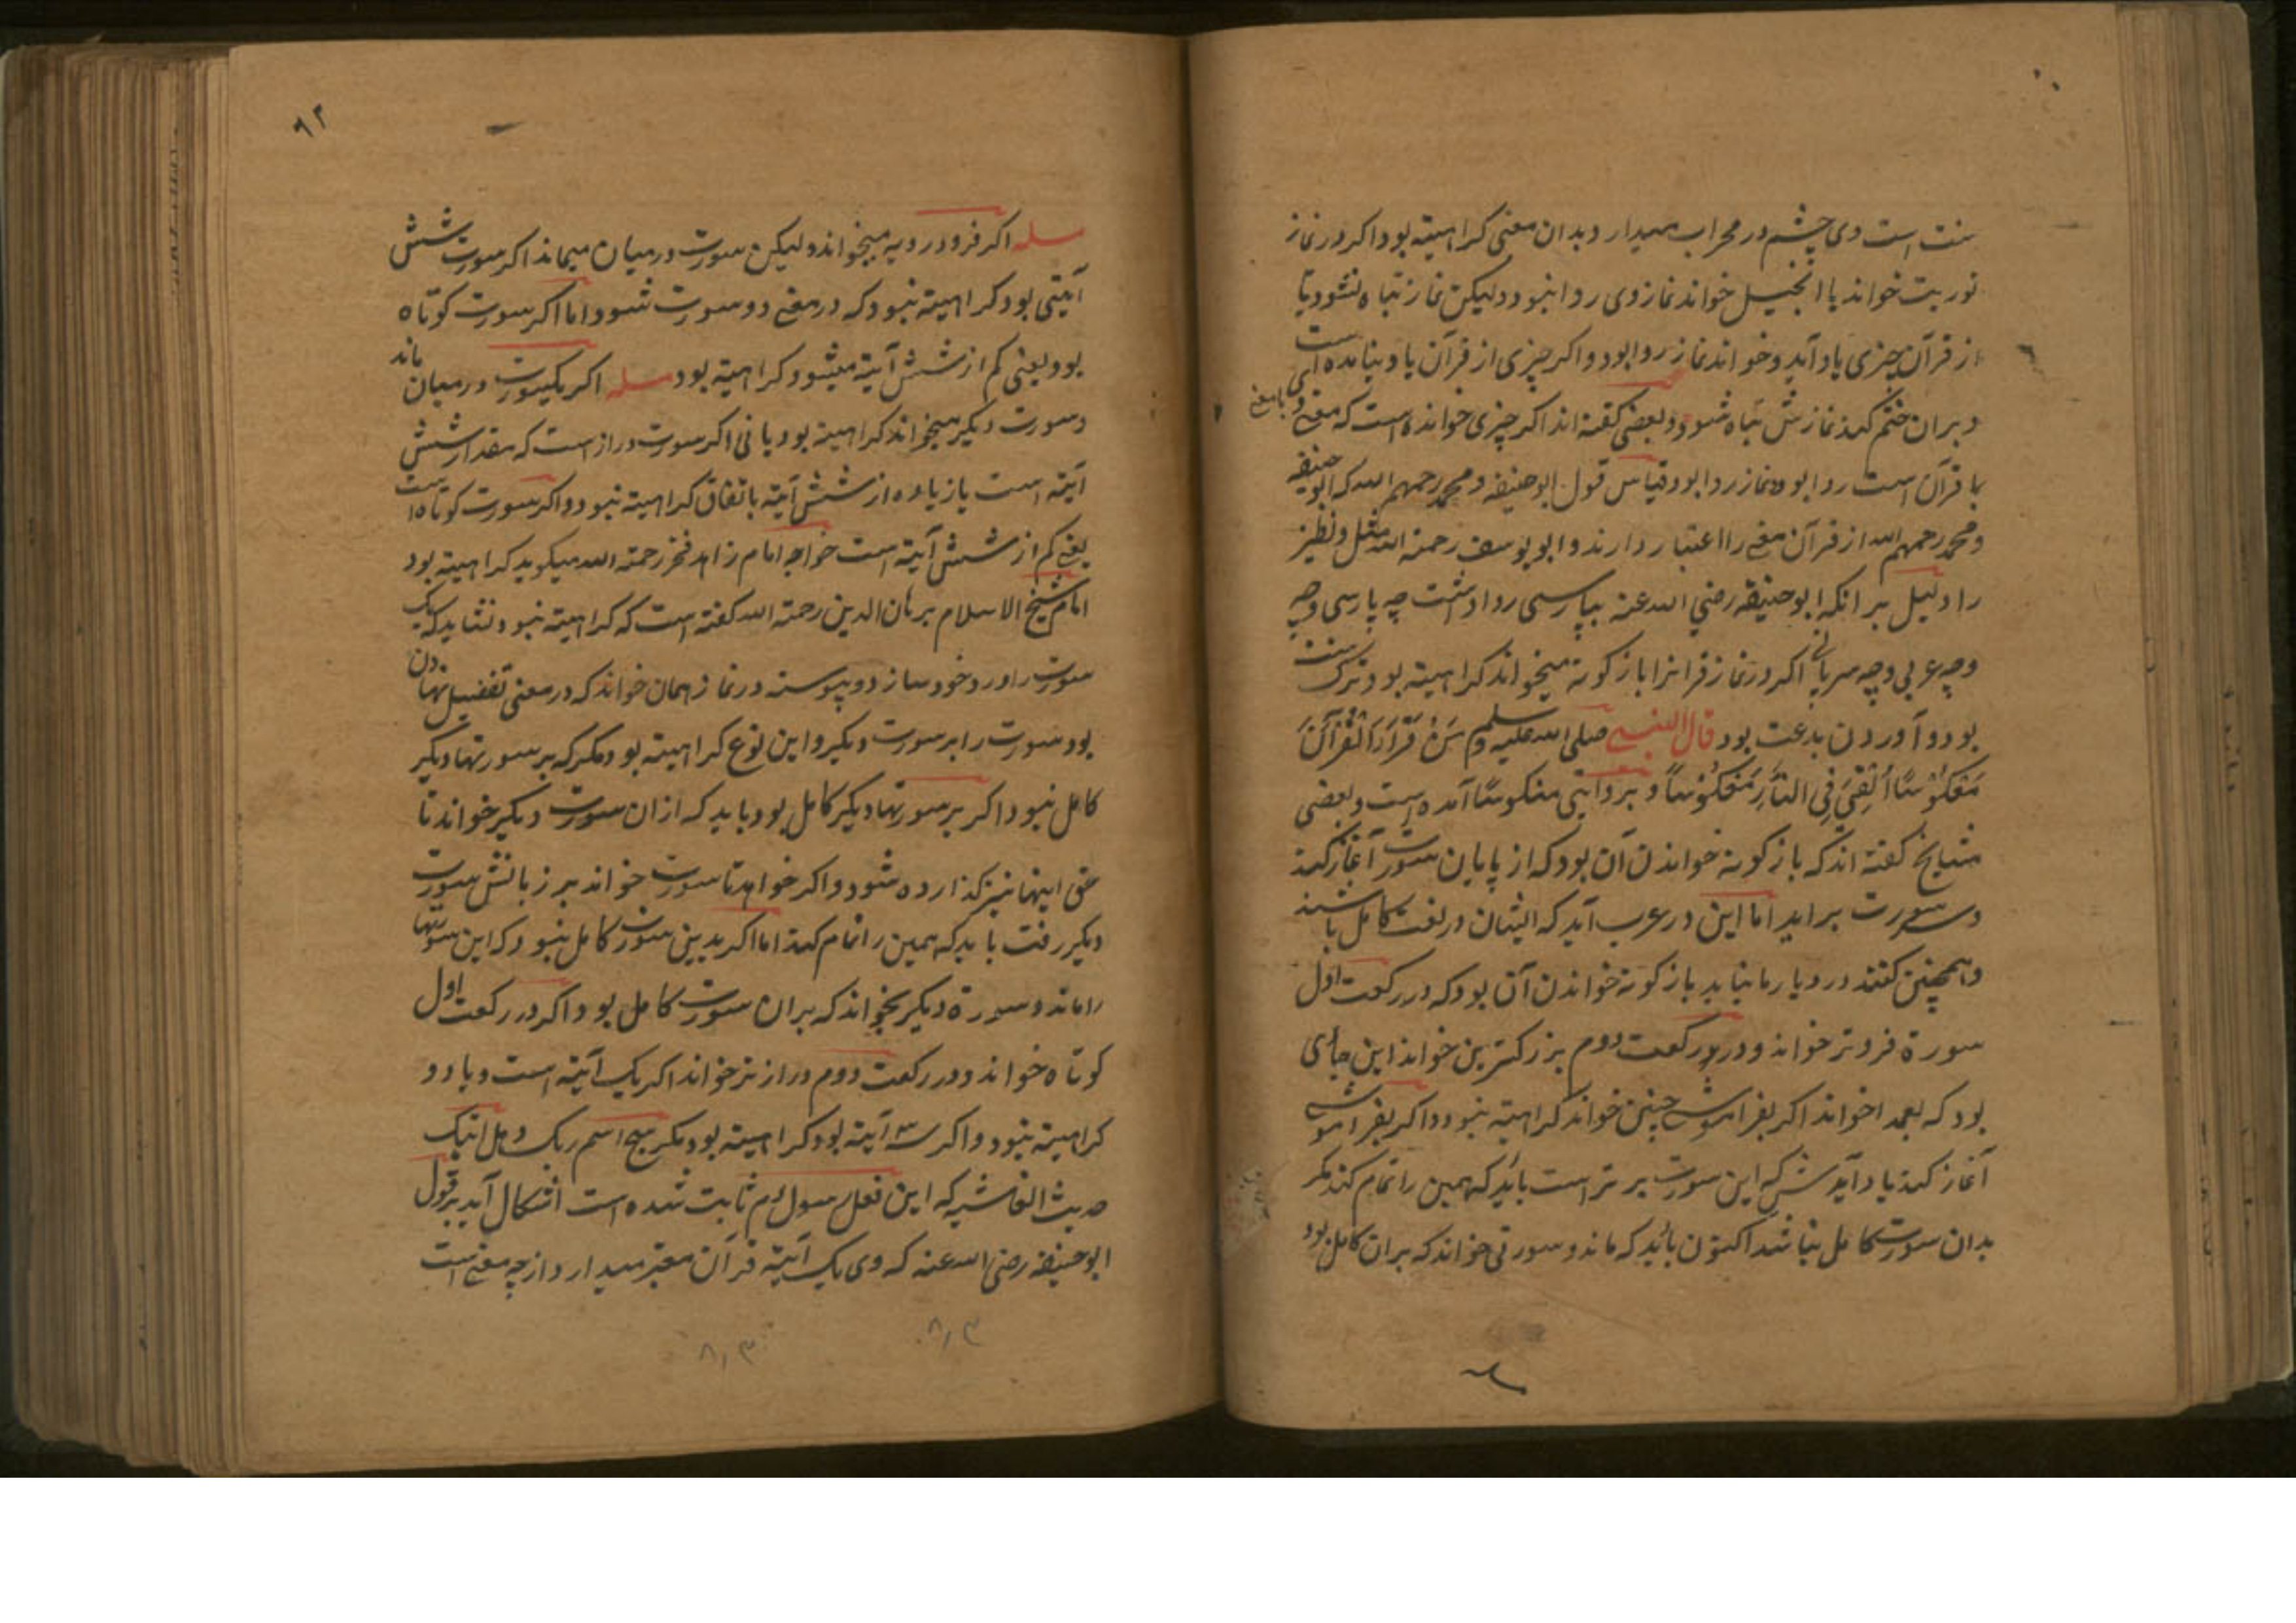 سنت است وی چشم در محراب میدارد بدان معنی کراهیته بود اکر در نماز
توریت خواند یا انجیل خواند نماز وی روا نبود ولیکن نماز تباه نشود تا
از قرآن چیزی یاد آید و خواند نماز روا بود و اکر چیزی از قرآن یاد نیامده است
و بران ختم کند نمازش تباه شود و بعضی کفته اند اکر چیزی خوانده است که معنی وی
بامعنی
با قرآن است روا بود و نماز روا بود قیاس قول ابوحنیفه و محمد رحمهم الله که ابوحنیفه
و محمد رحمهم الله از قرآن معنی را اعتبار دارند و ابویوسف رحمته الله مثل و نظیر
را دلیل بر انکه ابوحنیفه رضی الله عنه بپارسی روا داشت چه پارسی و چه
و چه عربی و چه سریانی اکر در نماز قرانرا باز کونه میخواند کراهیته بود و ترک سنت
بود و آوردن بدعت بود قال النبی صلی الله علیه وسلم من قرأ القرآن
معکوسا القی فی النار معکوسا و بروایتی منکوسا آمده است و بعضی
مشایخ کفته اند که باز کونه خواندن آن بود که از پایان سورت آغاز کند
و سر سورت براید اما این در عرب آید که ایشان در لغت کامل باشند
و همچنین کفتند در دیار ما نیاید باز کونه خواندن آن بود که در رکعت اول
سورة فروتر خواند و در رکعت دوم بزرکترین خواند این جای
بود که بعمدا خواند اکر بفراموش چنین خواند کراهیته نبود و اکر بفراموش
آغاز کند یاد آیدش که این سورت برتر است باید که همین را تمام کند مکر
بدان سورت کامل نباشد اکنون باید که ماند و سورتی خواند که بران کامل بود
۹۲
مسله اکر فرود رویه میخواند ولیکن سورت درمیان میماند اکر سورت شش
آیتی بود کراهیته نبود که در معنی دو سورت شود و اما اکر سورت کوتاه
بود یعنی کم از شش آیته میشود کراهیته بود مسله اکر یکسورت درمیان ماند
و سورت دیکر میخواند کراهیته بود یا نی اکر سورت دراز است که مقدار شش
آیته است یا زیاده از شش آیته باتفاق کراهیته نبود و اکر سورت کوتاه است
یعنی کم از شش آیته است خواجه امام زاهد فخر رحمته الله میکوید کراهیته بود
امام شیخ الاسلام برهان الدین رحمته الله کفته است که کراهیته نبود و نشاید که یک
سورت را ورد خود سازد و پیوسته در نماز همان خواند که در معنی تفضیل نهادن
بود سورت را بر سورت دیکر و این نوع کراهیته بود مکر که بر سورتها دیکر
کامل نبود اکر بر سورتها دیکر کامل بود باید که ازان سورت دیکر خواند تا
حق اینها نیز کذارده شود و اکر خواهد تا سورت خواند بر زبانش سورت
دیکر رفت باید که همین را تمام کند اما اکر بدین سورت کامل نبود که این سورتها
را ماند و سورة دیکر بخواند که بران سورت کامل بود اکر در رکعت اول
کوتاه خواند و در رکعت دوم درازتر خواند اکر یک آیته است و یا دو
کراهیته نبود و اکر سه آیته بود کراهیته بود مکر سبح اسم ربک و هل اتیک
حدیث الغاشیه که این فعل رسول م ثابت شده است اشکال آید بر قول
ابوحنیفه رضی الله عنه که وی یک آیته قرآن معتبر میدارد از چه معنی است